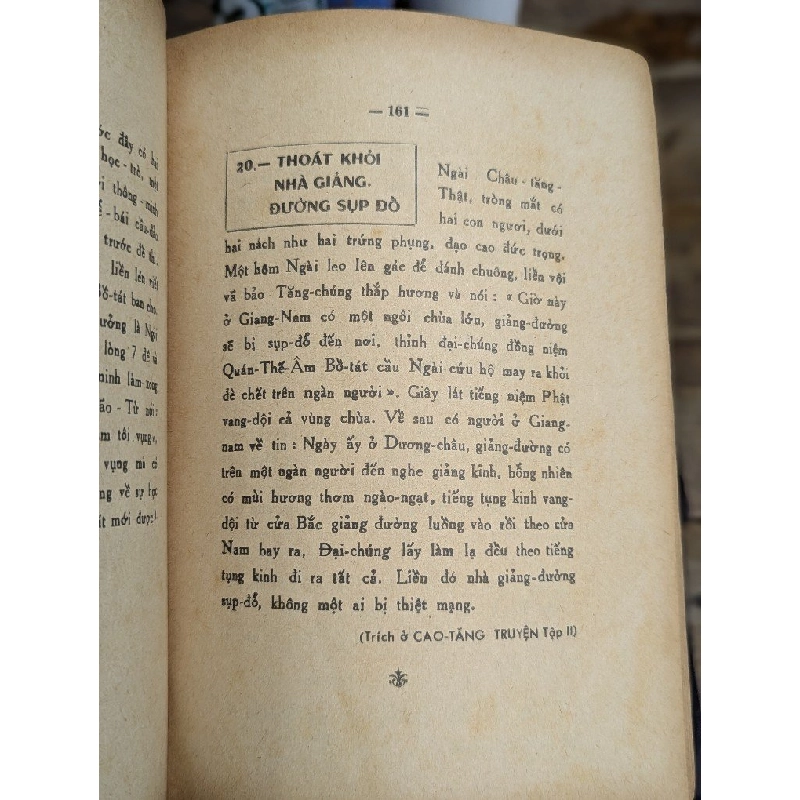 ớc đây có hai
học-trò, một
thông-minh
-bái cầu-đảo
trước đề thi.
liền lén viết
Bồ-tát ban cho.
ưởng là Ngài
lòng 7 đề và
minh làm xong
ão-Từ nói:
m tồi vụng»,
vụng mà có
ng về sự học
ít mới được!
— 161 —
20.— THOÁT KHỎI
NHÀ GIẢNG.
ĐƯỜNG SỤP ĐỔ
Ngài Châu-tăng-
Thật, tròng mắt có
hai con ngươi, dưới
hai nách như hai trứng phụng, đạo cao đức trọng.
Một hôm Ngài leo lên gác để đánh chuông, liền vội
vã bảo Tăng-chúng thắp hương và nói : « Giờ này
ở Giang-Nam có một ngôi chùa lớn, giảng-đường
sẽ bị sụp-đổ đến nơi, thỉnh đại-chúng đồng niệm
Quán-Thế-Âm Bồ-tát cầu Ngài cứu hộ may ra khỏi
đè chết trên ngàn người ». Giây lát tiếng niệm Phật
vang-dội cả vùng chùa. Về sau có người ở Giang-
nam về tin : Ngày ấy ở Dương-châu, giảng-đường có
trên một ngàn người đến nghe giảng kinh, bỗng nhiên
có mùi hương thơm ngào-ngạt, tiếng tụng kinh vang-
dội từ cửa Bắc giảng đường luồng vào rồi theo cửa
Nam bay ra, Đại-chúng lấy làm lạ đều theo tiếng
tụng kinh đi ra tất cả. Liền đó nhà giảng-đường
sụp-đổ, không một ai bị thiệt mạng.
(Trích ở CAO-TĂNG TRUYỆN Tập II)